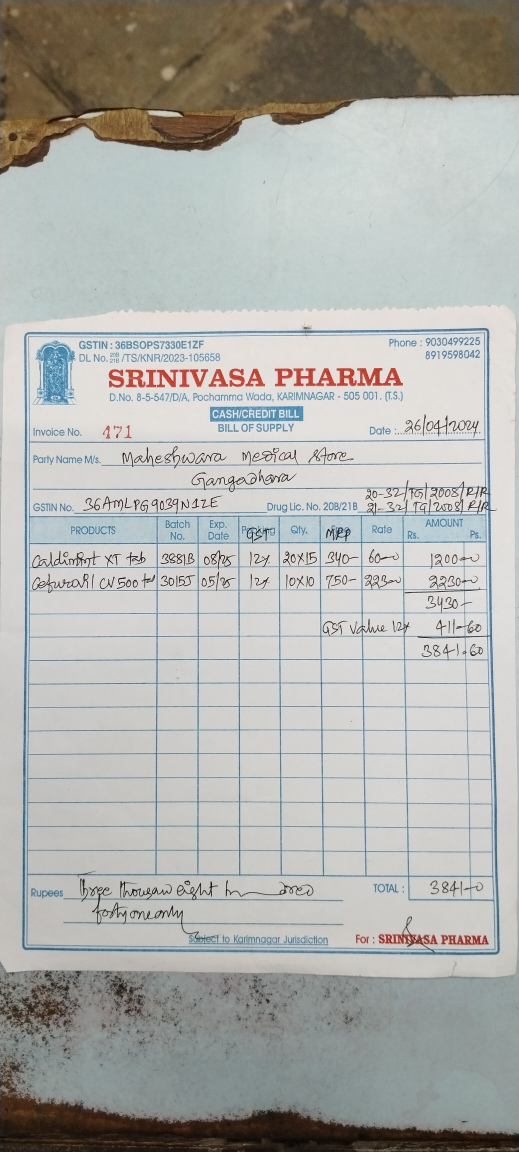 GSTIN : 36BSOPS7330E1ZF Phone : 9030499225
DL No. 20B 21B /TS/KNR/2023-105658 8919598042
SRINIVASA PHARMA
D.No. 8-5-547/D/A, Pochamma Wada, KARIMNAGAR - 505 001. (T.S.)
CASH/CREDIT BILL
Invoice No. 471 BILL OF SUPPLY Date : 26/04/2024
Party Name M/s. Maheshwara Medical Store
Gangadhara
20-32/TG/2008/R/R
GSTIN No. 36AMLPG9039N1ZE Drug Lic. No. 20B/21B 21-32/TG/2008/R/R
PRODUCTS Batch No. Exp. Date GST Qty. MRP Rate AMOUNT Rs. Ps.
XT tab 3881B 08/25 12% 20X15 340- 60-0 1200-0
CV 500 3015J 05/25 12% 10X10 750- 223-0 2230-0
3430-
GST Value 12% 411-60
3841.60
Rupees Three thousand eight hundred TOTAL : 3841-0
forty one only
Subject to Karimnagar Jurisdiction For : SRINIVASA PHARMA